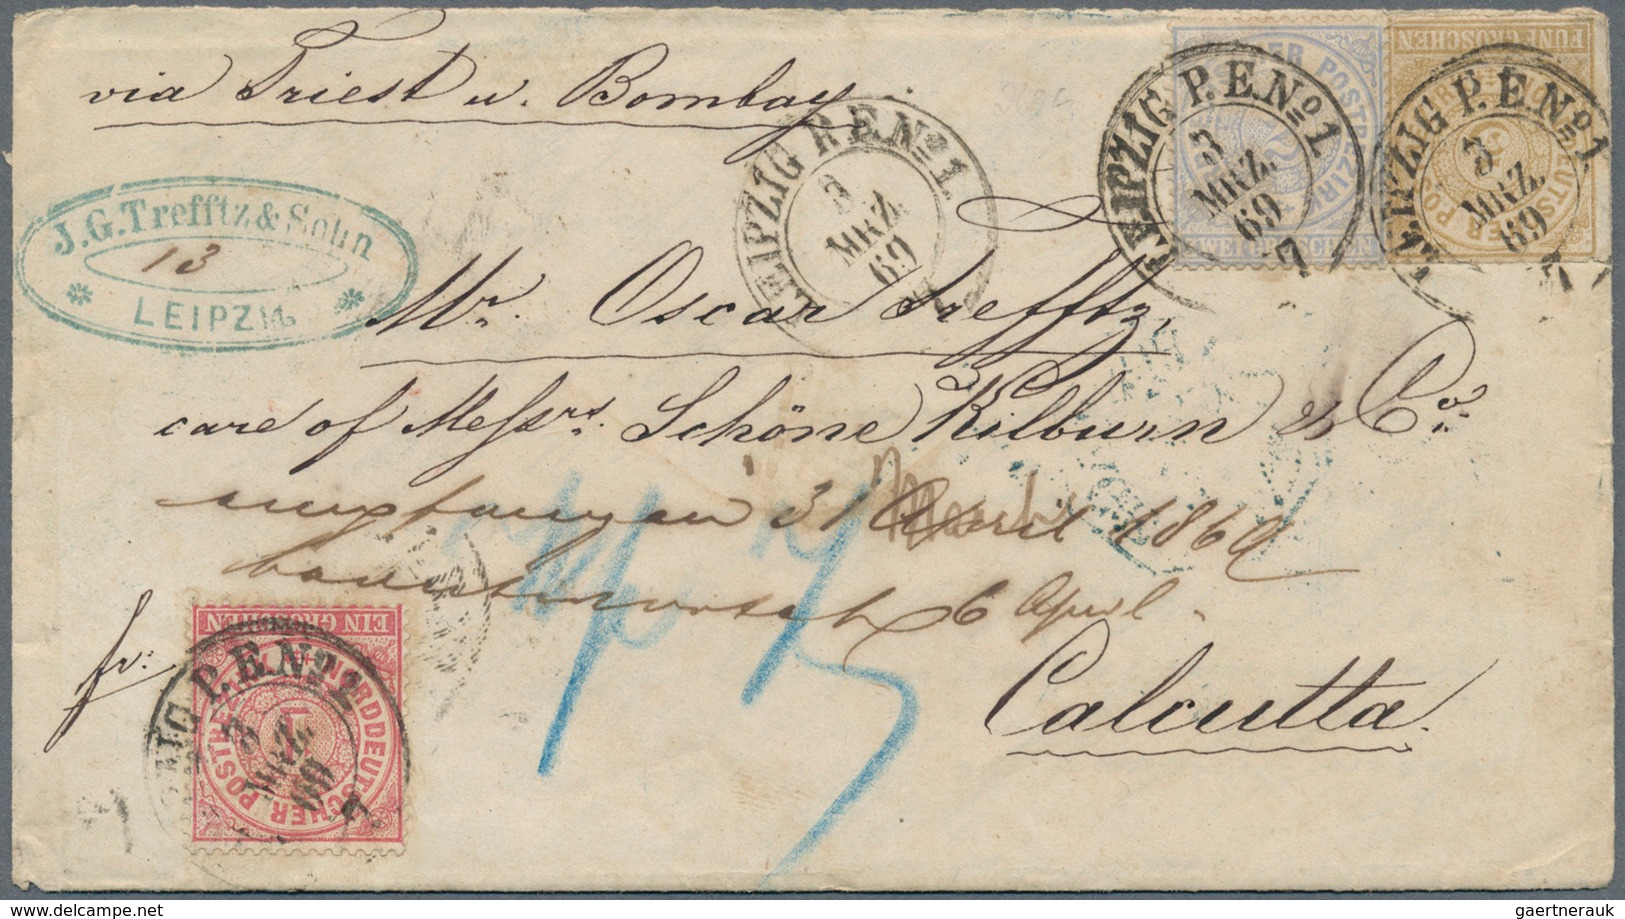 via Triest u. Bombay
ZWEI GROSCHEN
FÜNF GROSCHEN
LEIPZIG P.E.No.1.
3
MRZ.
69
LEIPZIG P.E.No.1
3
MRZ.
69
7
LEIPZIG P.E.No.1
3
MRZ.
69
J.G.Trefftz & Sohn
13
LEIPZIG.
Mr. Oscar Trefftz,
care of Messrs. Schöne Kilburn & Co.
empfangen 31 March 1869
beantwortet 6 April
fr:
Calcutta.
EIN GROSCHEN
NORDDEUTSCHER POSTBEZIRK
1
P.E.No.1
gaertnerauk